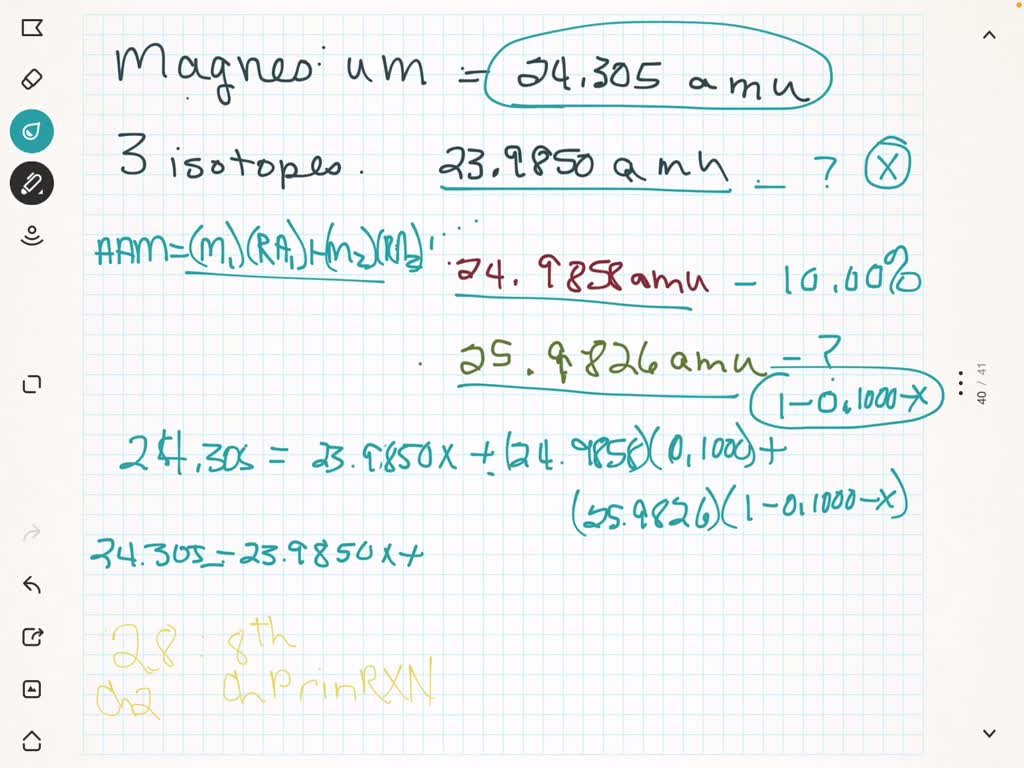 Magnesium = 24.305 amu
3 isotopes. 23.9850 amu – ? X
AAM=(M₁)(RA₁)+(m₂)(RA₂)...
24.9858 amu – 10.00%
25.9826 amu – ?
1-0.1000-X
24.305 = 23.9850X + (24.9858)(0.1000)+
(25.9826)(1-0.1000-X)
24.305=23.9850X+
2.8: 8th
Ch2 ChPrinRXN
40 / 41